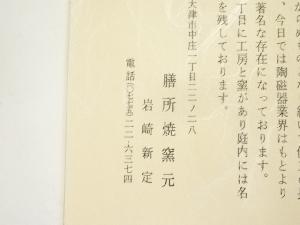 今日では陶磁器業界はもとより
著名な存在になっております。
丁目に工房と窯があり庭内には名
を残しております。
大津市中庄一丁目二二ノ二八
膳所焼窯元
岩崎新定
電話 二二・六三七四